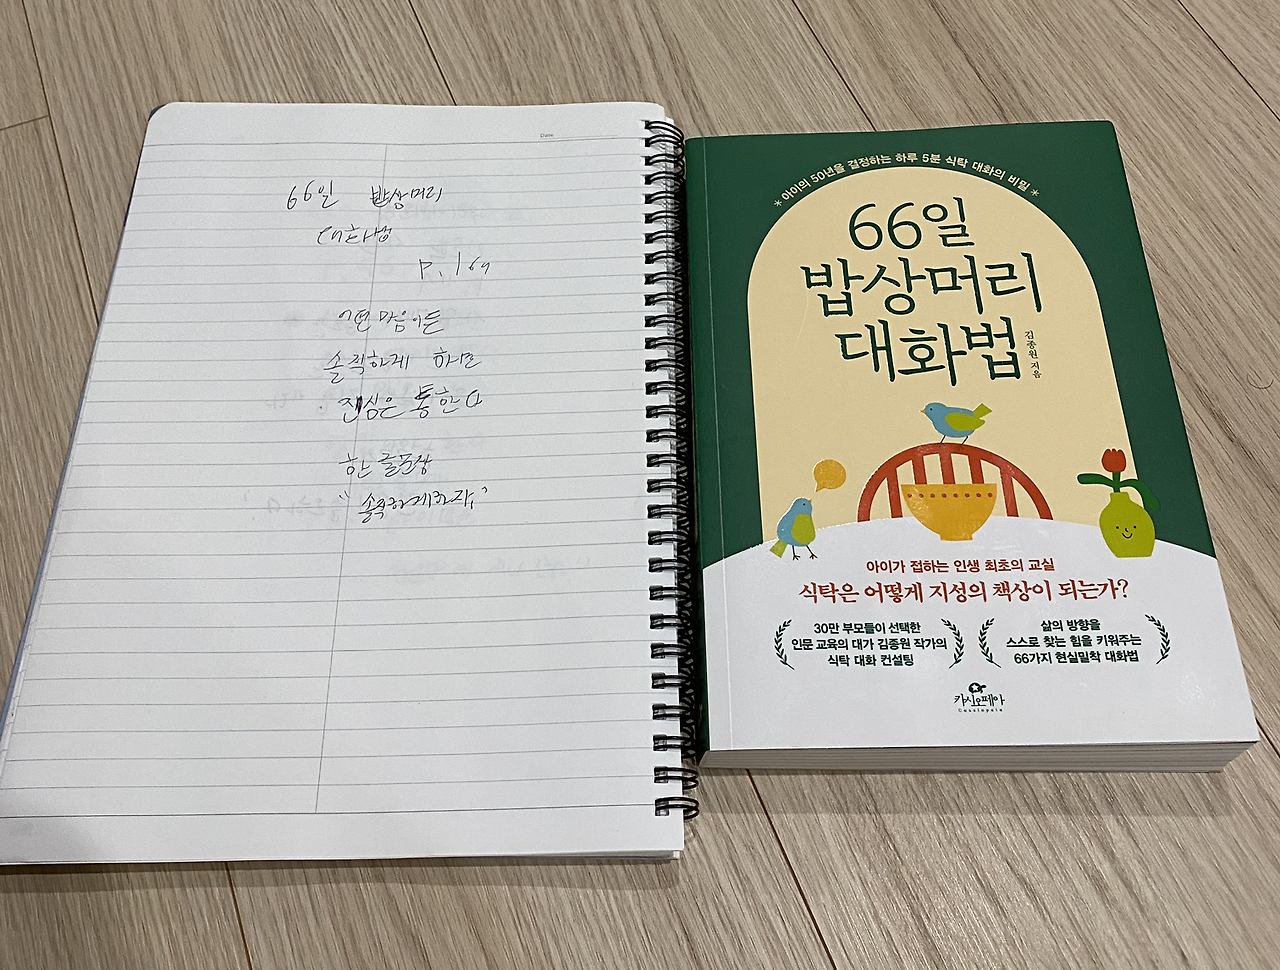 Date
66일 밥상머리
대화법
어떤 마음이든
솔직하게 하면
진심은 통한다
한 글 문장
"솔직하게하자"
* 아이의 50년을 결정하는 하루 5분 식탁 대화의 비밀 *
66일
밥상머리
대화법
김종원 지음
아이가 접하는 인생 최초의 교실
식탁은 어떻게 지성의 책상이 되는가?
30만 부모들이 선택한
인문 교육의 대가 김종원 작가의
식탁 대화 컨설팅
삶의 방향을
스스로 찾는 힘을 키워주는
66가지 현실밀착 대화법
카시오페아
Cassiopeia